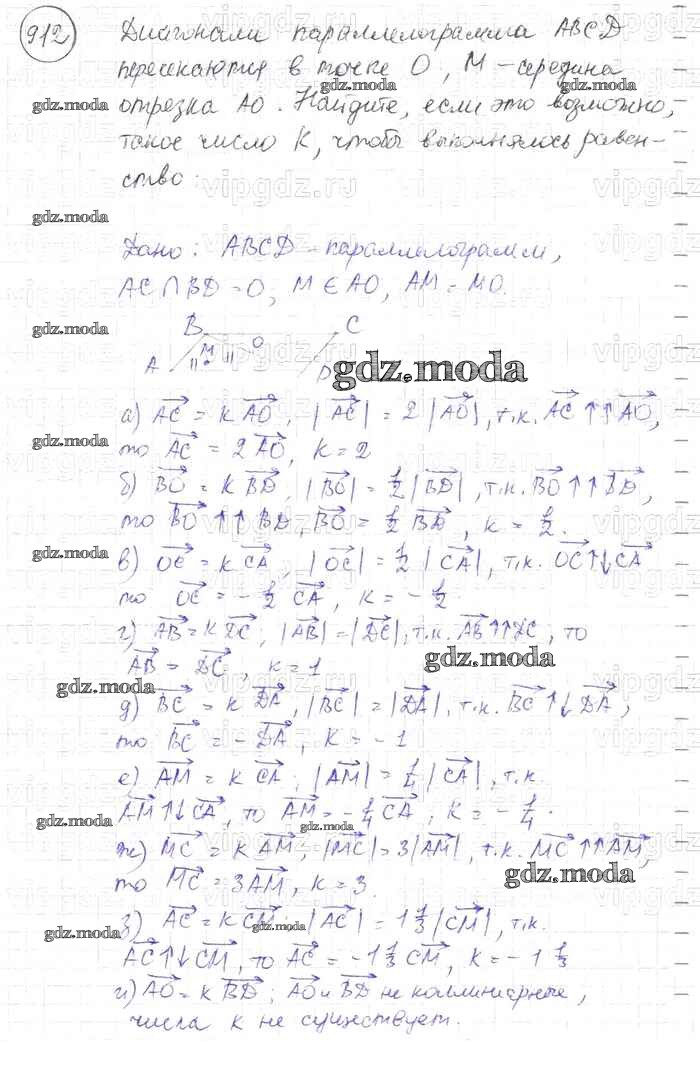 912
Диагонали параллелограмма ABCD
пересекаются в точке O, M – середина
отрезка AO. Найдите, если это возможно,
такое число K, чтобы выполнялось равен-
ство:
Дано: ABCD – параллелограмм,
AC ∩ BD = O, M ∈ AO, AM = MO.
B C
M O
A D
gdz.moda
а) AC = k AO, |AC| = 2 |AO|, т.к. AC ↑↑ AO,
то AC = 2AO, k = 2
б) BO = k BD, |BO| = 1/2 |BD|, т.к. BO ↑↑ BD,
то BO ↑↑ BD, BO = 1/2 BD, k = 1/2.
в) OC = k CA, |OC| = 1/2 |CA|, т.к. OC ↑↓ CA
то OC = - 1/2 CA, k = - 1/2
г) AB = k DC; |AB| = |DC|, т.к. AB ↑↑ DC, то
AB = DC, k = 1
д) BC = k DA, |BC| = |DA|, т.к. BC ↑↓ DA,
то BC = - DA, k = - 1
е) AM = k CA; |AM| = 1/4 |CA|, т.к.
AM ↑↓ CA, то AM = - 1/4 CA, k = - 1/4.
ж) MC = k AM; |MC| = 3|AM|, т.к. MC ↑↑ AM,
то MC = 3AM, k = 3.
з) AC = k CM; |AC| = 1 1/3 |CM|, т.к.
AC ↑↓ CM, то AC = - 1 1/3 CM, k = - 1 1/3
и) AO = k BD; AO и BD не коллинеарные,
числа k не существует.